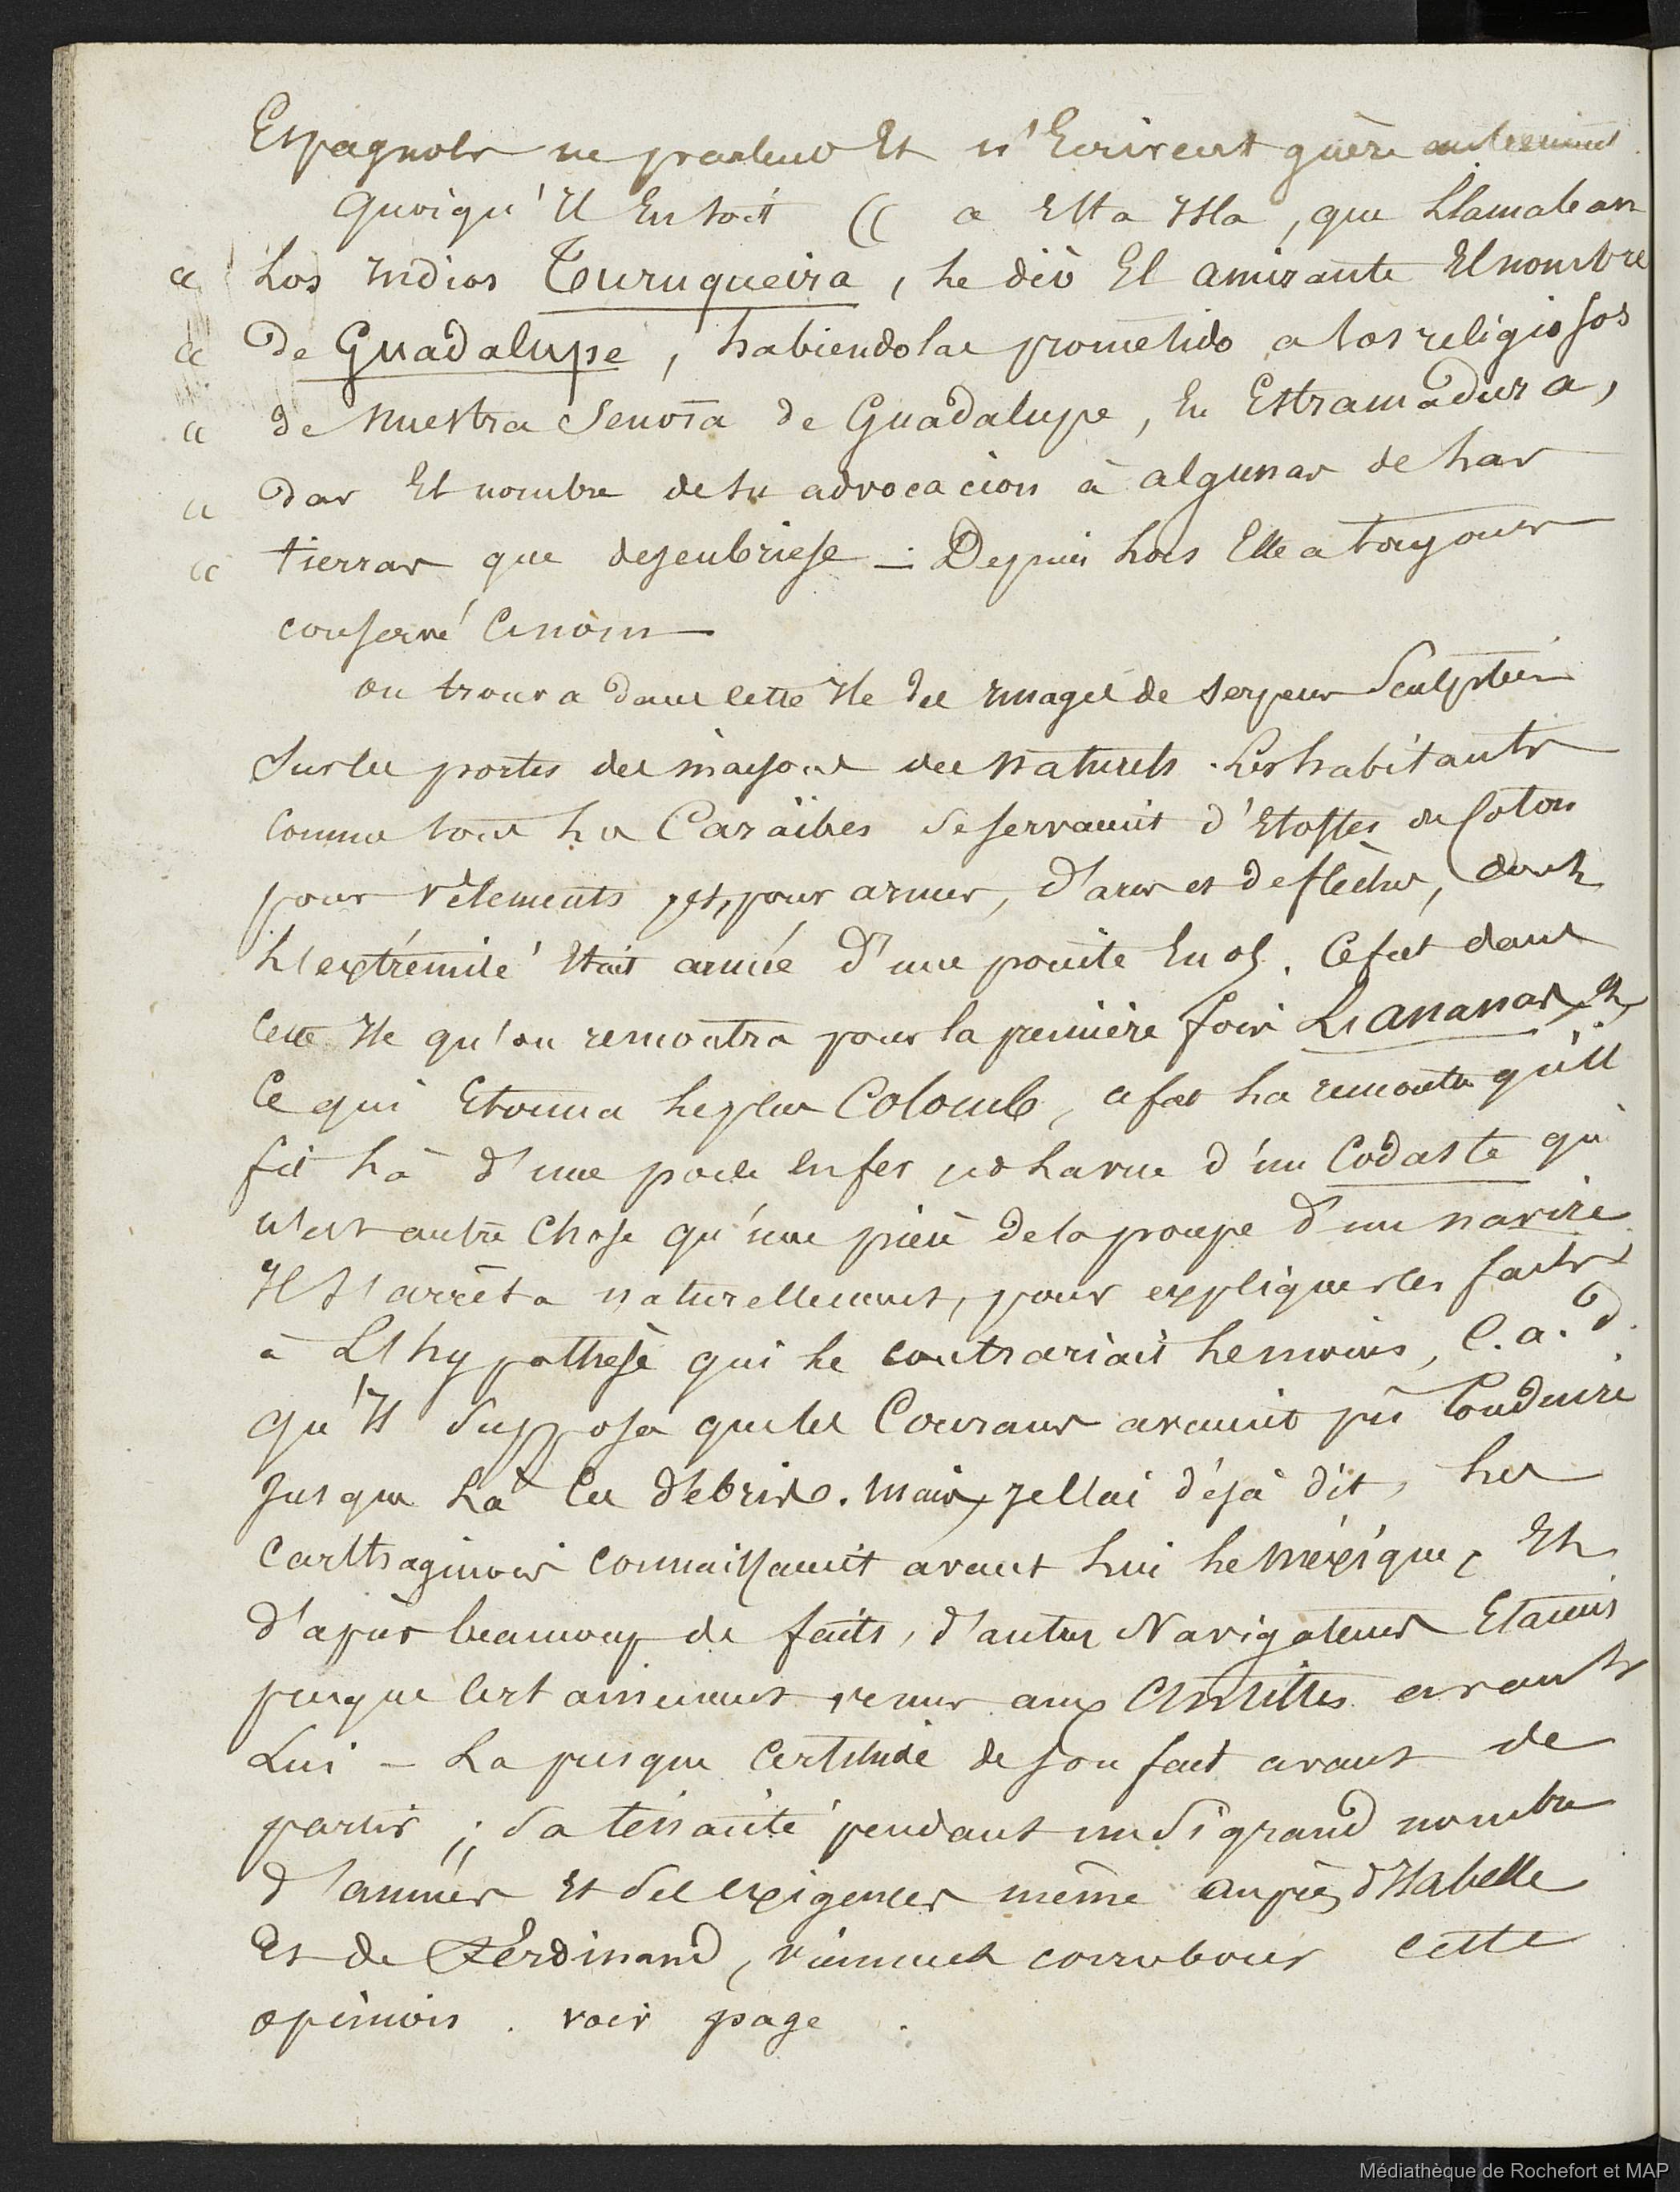 Espagnols ne parlent Et n'Ecrivent guère autrement
Quoiqu'Il En soit (( a Esta Isla, que Llamaban
(( Los Indios Turuqueira, le diò El amirante El nombre
(( De Guadalupe, habiendola prometido a los religiosos
(( de Nuestra Senora de Guadalupe, En Estramadura,
(( dar El nombre de su advocacion à algunas de las
(( tierras que descubriese _. Depuis lors Elle a toujours
conservé ce nom
on trouva dans cette Ile des Images de serpens Sculptées
Sur les portes des maisons des naturels. Les habitants
Comme tous les Caraïbes se servaient d'Etoffes de Coton
pour vêtements et, pour armes, d'arcs et de flèches, dont
L'extrémité Etait armée d'une pointe En os. Ce fut dans
Cette Ile qu'on rencontra pour la première fois L'ananas, Et
Ce qui Etonna le plus Colomb, ce fut la rencontre qu'Il
fit là d'une poele en fer et la vue d'un Codaste qui
n'est autre chose qu'une pièce de la poupe d'un navire
Il s'arrêta naturellement, pour expliquer les faits
à L'hypothèse qui le contrariait le moins, C.a.d.
qu'Il Supposa que les Courans avaient pu Conduire
Jusque là ces débris. Mais, je l'ai déjà dit, les
Carthaginois connaissaient avant lui le Méxique, Et
d'après beaucoup de faits, d'autres Navigateurs Etaient
presque certainement venus aux Antilles avant
Lui - La presque Certitude de son fait avant de
partir; Sa ténacité pendant un Si grand nombre
d'années Et Ses exigences même auprès d'Isabelle
Et de Ferdinand, viennent corroborer cette
opinion. voir page .
Médiathèque de Rochefort et MAP